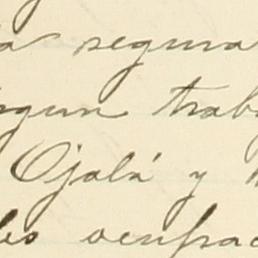 a segura
ngun trab
Ojalá y
les ocupac